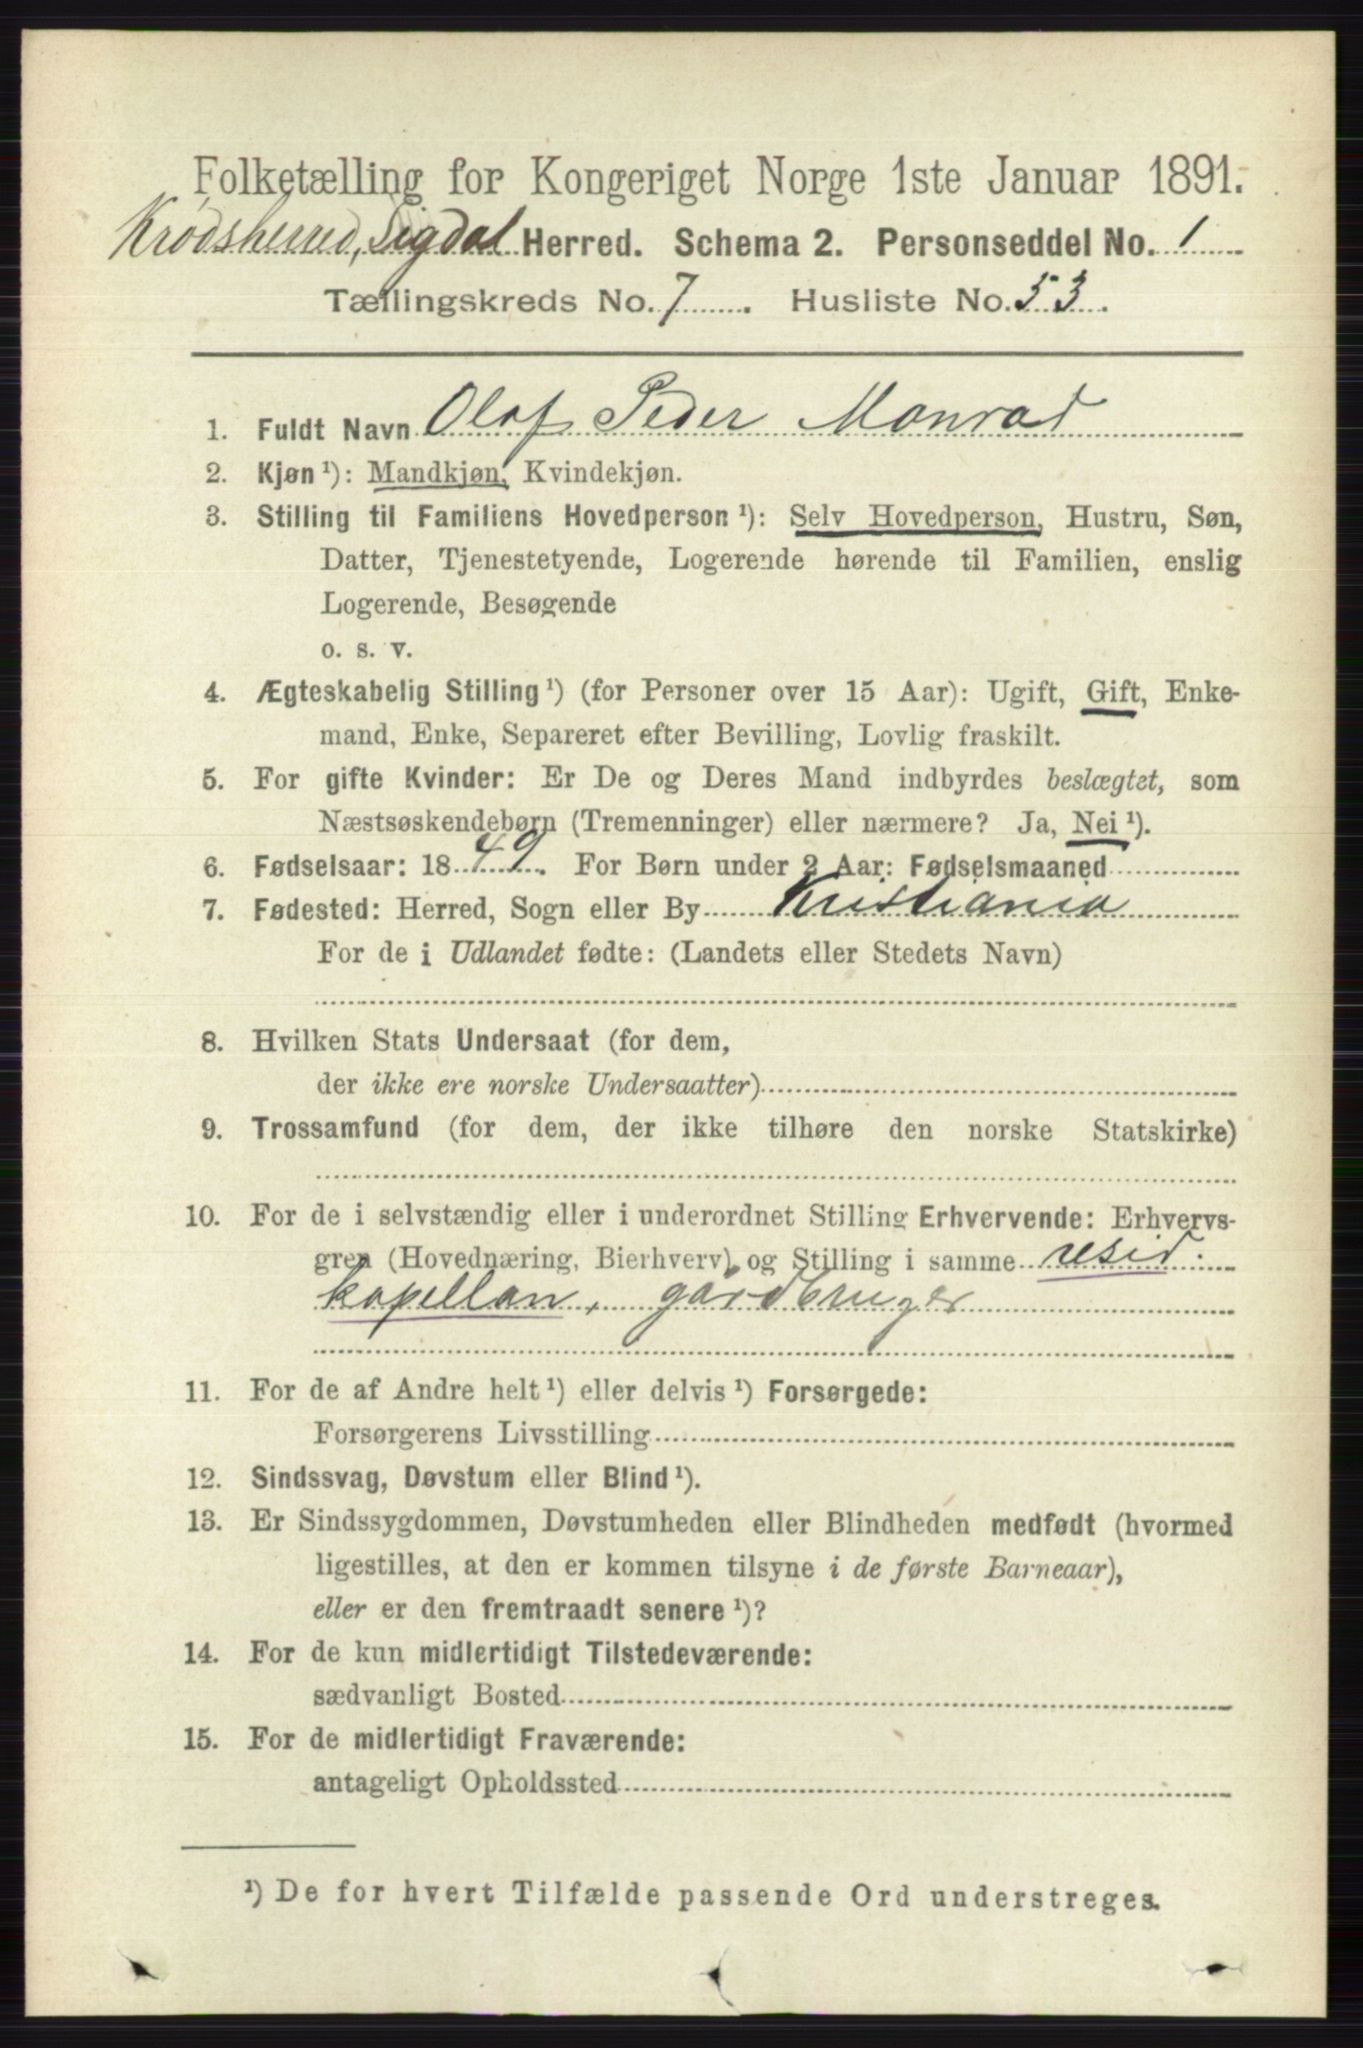 Folketælling for Kongeriget Norge 1ste Januar 1891.
Krødsherred, Sigdal Herred. Schema 2. Personseddel No. 1
Tællingskreds No. 7. Husliste No. 53.
1. Fuldt Navn Olaf Peder Monrad
2. Kjøn ¹): Mandkjøn, Kvindekjøn.
3. Stilling til Familiens Hovedperson ¹): Selv Hovedperson, Hustru, Søn,
Datter, Tjenestetyende, Logerende hørende til Familien, enslig
Logerende, Besøgende
o. s. v.
4. Ægteskabelig Stilling ¹) (for Personer over 15 Aar): Ugift, Gift, Enke-
mand, Enke, Separeret efter Bevilling, Lovlig fraskilt.
5. For gifte Kvinder: Er De og Deres Mand indbyrdes beslægtet, som
Næstsøskendebørn (Tremenninger) eller nærmere? Ja, Nei ¹).
6. Fødselsaar: 1849. For Børn under 2 Aar: Fødselsmaaned
7. Fødested: Herred, Sogn eller By Kristiania
For de i Udlandet fødte: (Landets eller Stedets Navn)
8. Hvilken Stats Undersaat (for dem,
der ikke ere norske Undersaatter)
9. Trossamfund (for dem, der ikke tilhøre den norske Statskirke)
10. For de i selvstændig eller i underordnet Stilling Erhvervende: Erhvervs-
gren (Hovednæring, Bierhverv) og Stilling i samme resid.
kapellan, gårdbruger
11. For de af Andre helt ¹) eller delvis ¹) Forsørgede:
Forsørgerens Livsstilling
12. Sindssvag, Døvstum eller Blind ¹).
13. Er Sindssygdommen, Døvstumheden eller Blindheden medfødt (hvormed
ligestilles, at den er kommen tilsyne i de første Barneaar),
eller er den fremtraadt senere ¹)?
14. For de kun midlertidigt Tilstedeværende:
sædvanligt Bosted
15. For de midlertidigt Fraværende:
antageligt Opholdssted
¹) De for hvert Tilfælde passende Ord understreges.